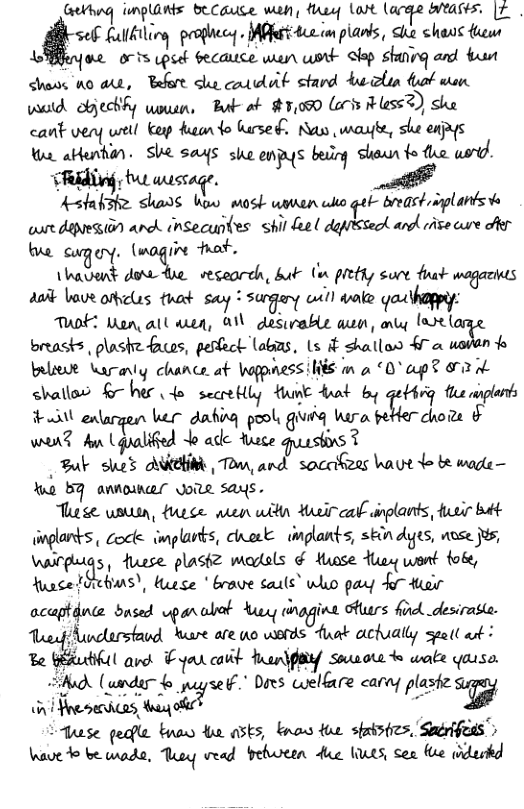 Getting implants because men, they love large breasts. 7
A self fullfilling prophecy. After the implants, she shows them
to everyone or is upset because men wont stop staring and then
shows no one. Before she couldn't stand the idea that men
would objectify women. But at $8,000 (or is it less?), she
can't very well keep them to herself. Now, maybe, she enjoys
the attention. She says she enjoys being shown to the world.
Feeding the message.
A statistic shows how most women who get breast implants to
cure depression and insecurities still feel depressed and insecure after
the surgery. Imagine that.
I haven't done the research, but I'm pretty sure that magazines
don't have articles that say: surgery will make you happy.
That: Men, all men, all desirable men, only love large
breasts, plastic faces, perfect labias. Is it shallow for a woman to
believe her only chance at happiness lies in a 'D' cup? or is it
shallow for her, to secretly think that by getting the implants
it will enlargen her dating pool, giving her a better choice of
men? Am I qualified to ask these questions?
But she's a victim, Tom, and sacrifices have to be made –
the big announcer voice says.
These women, these men with their calf implants, their butt
implants, cock implants, cheek implants, skin dyes, nose jobs,
hairplugs, these plastic models of those they want to be,
these 'victims', these 'brave souls' who pay for their
acceptance based upon what they imagine others find desirable.
They understand there are no words that actually spell out:
Be beautiful and if you can't then pay someone to make you so.
And I wonder to myself. 'Does welfare carry plastic surgery
in the services they offer?
These people know the risks, know the statistics. Sacrifices
have to be made. They read between the lines, see the indented